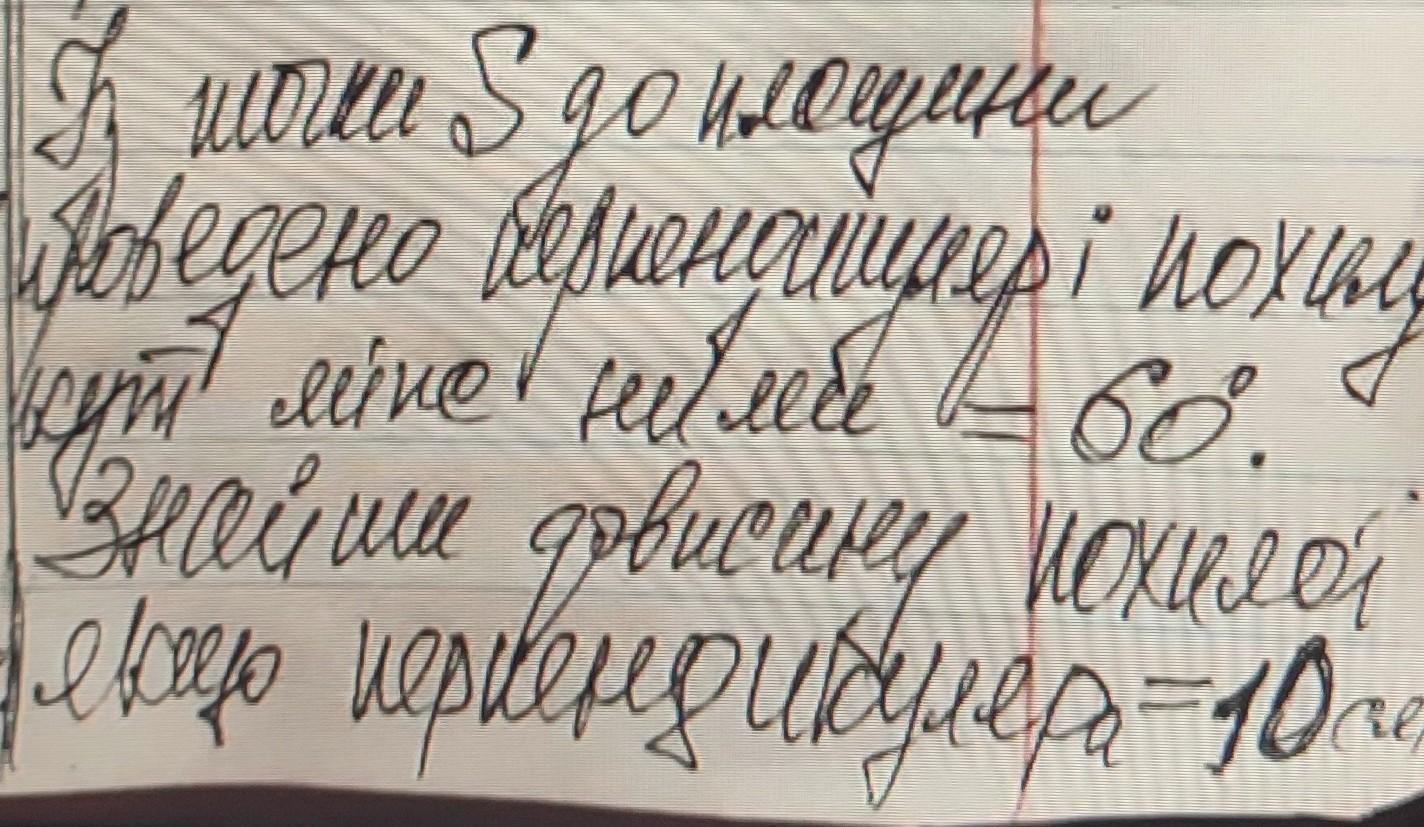 Із точки S до площини
проведено перпендикуляр і похилу
кут між ними = 60°.
Знайти довжину похилої
якщо перпендикуляра = 10 см